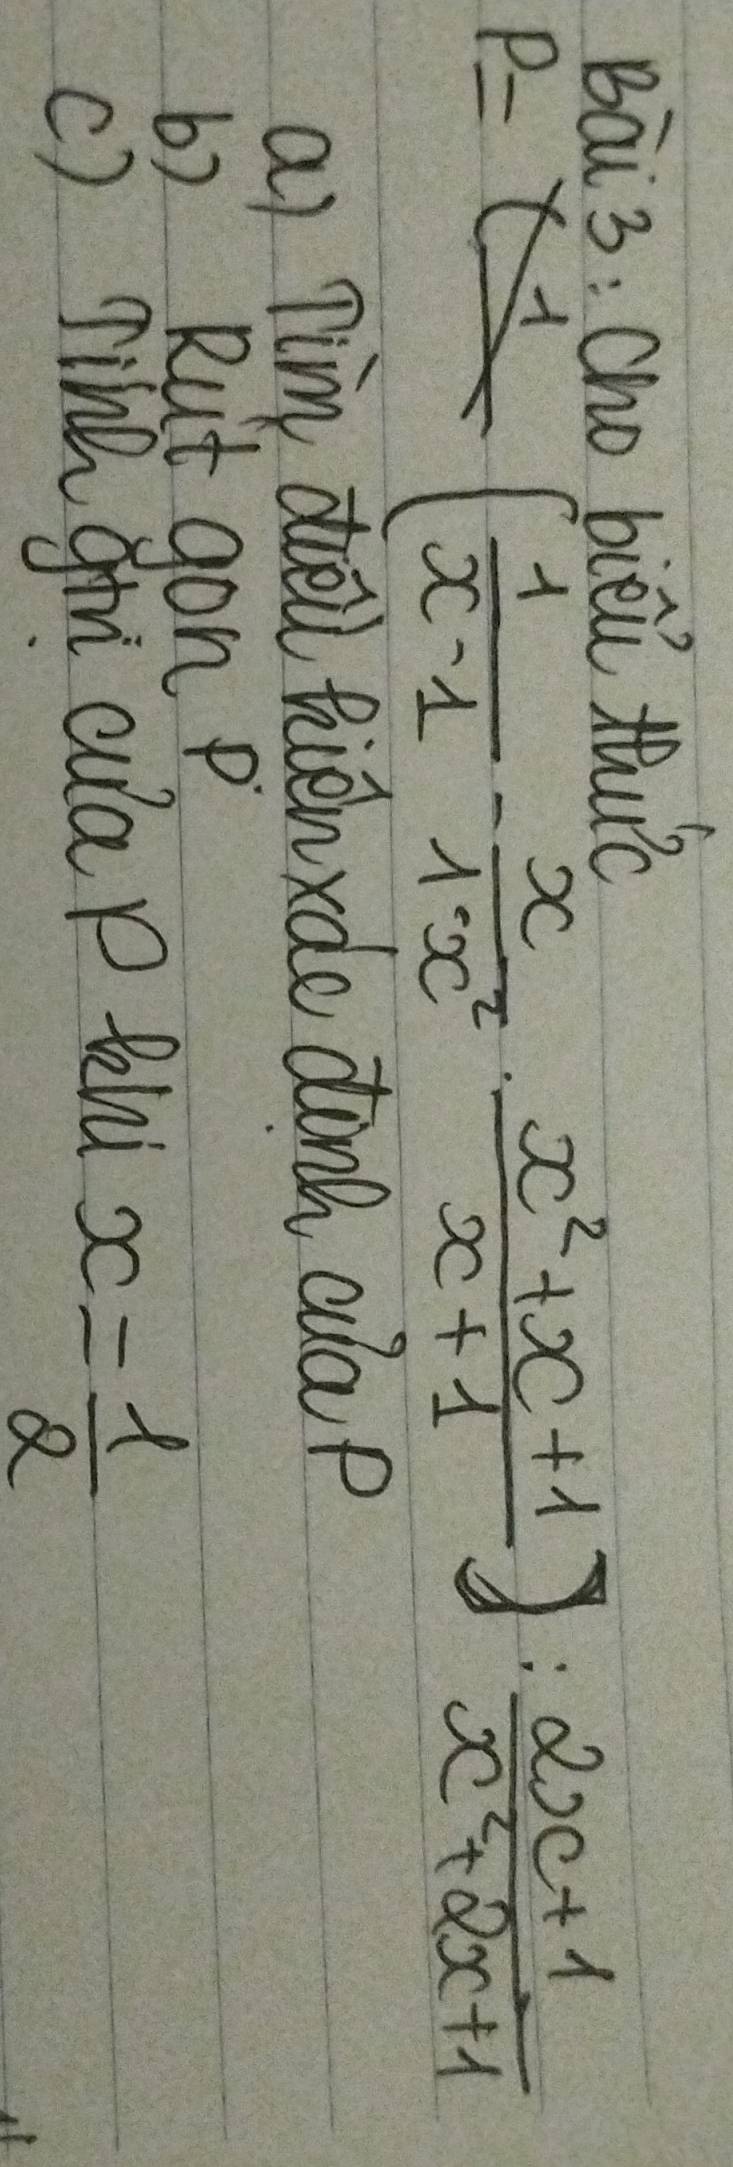 Bài 3: Cho biểu thức
P = ( 1/(x-1) - x/(1-x²) . (x²+x+1)/(x+1) ) : (2x+1)/(x²+2x+1)
a) Tìm điều kiện xác định của P
b) Rút gọn P
c) Tính gtrị của P khi x = 1/2